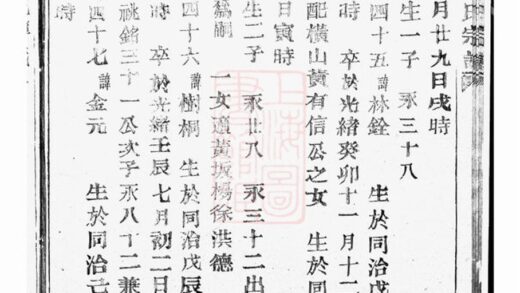 氏宗譜
月廿九日戌時
生一子 永三十八
四十五 諱林銓 生於同治戊
時 卒於光緒癸卯十一月十二
配橫山黃有信公之女 生於同
日寅時
生二子 永廿八 永三十二出
嗣 一女適黃坂楊徐洪德
四十六 諱樹桐 生於同治戊辰
時 卒於光緒壬辰七月初二日
祧銘三十一公次子永八十二兼
四十七 諱金元 生於同治己
時
上海圖